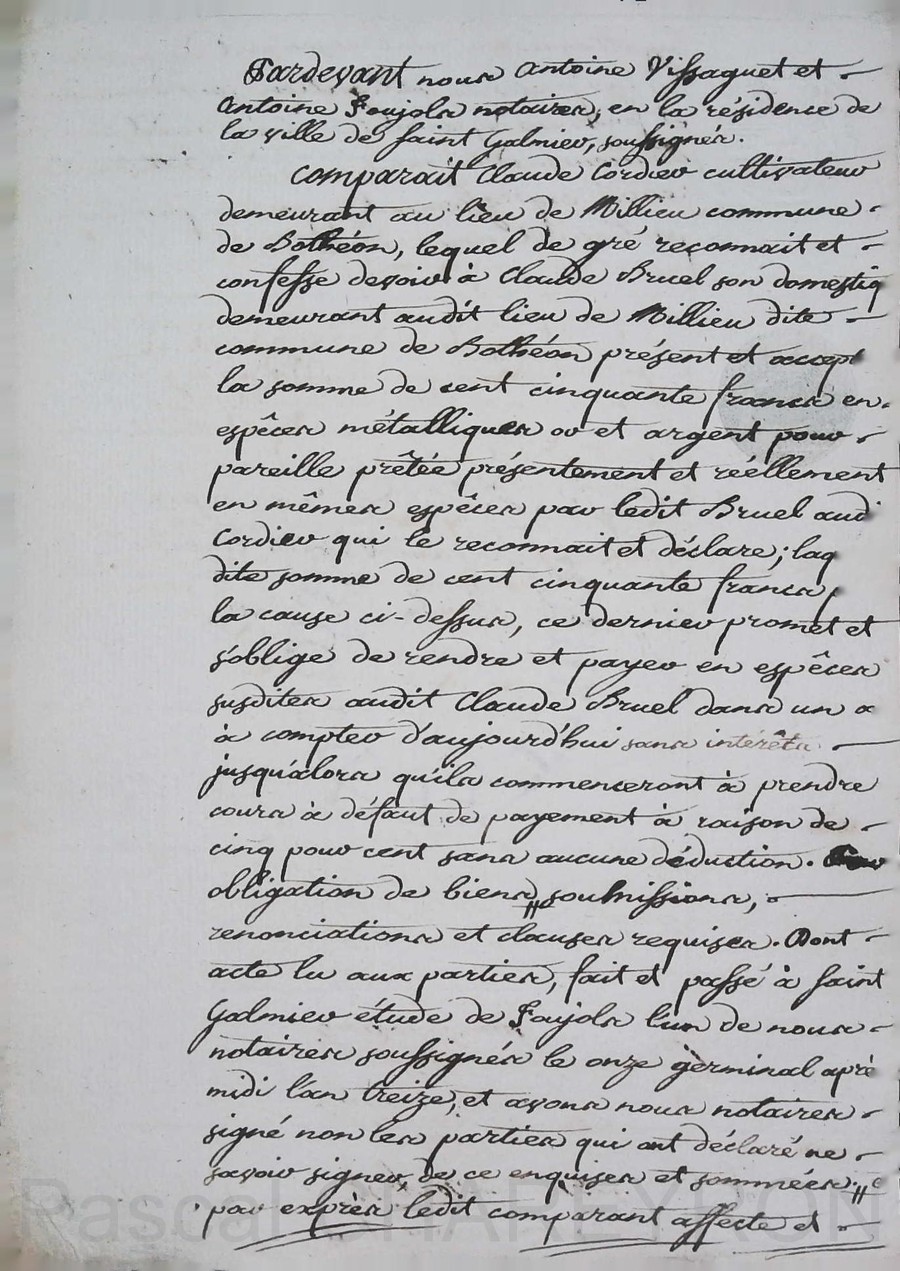 Pardevant nous Antoine Vissaguet et
Antoine Foujols notaires, en la résidence de
la ville de Saint Galmier, soussignés.
Comparait Claude Cordier cultivateur
demeurant au lieu de Millieu commune
de Bothéon, lequel de gré reconnait et
confesse devoir à Claude Bruel son domestiq
demeurant audit lieu de Millieu dite
commune de Bothéon présent et accept
la somme de cent cinquante francs en
espêces métalliques or et argent pour
pareille prêtée présentement et réellement
en mêmes espêces par ledit Bruel audi
Cordier qui le reconnait et déclare; laq
dite somme de cent cinquante francs p
la cause ci-dessus, ce dernier promet et
s'oblige de rendre et payer en espêces
susdites audit Claude Bruel dans un a
à compter d'aujourd'hui sans intérêts
jusqu'alors qu'ils commenceront à prendre
cours à défaut de payement à raison de
cinq pour cent sans aucune déduction.
obligation de biens, // soumissions,
renonciations et clauses requises. Dont
acte lu aux parties, fait et passé à Saint
Galmier étude de Foujols l'un de nous
notaires soussignés le onze germinal aprè
midi l'an treize, et avons nous notaires
signé non les parties qui ont déclaré ne
savoir signer, de ce enquises et sommées. //
par exprès ledit comparant affecte et
Pascal CHALEYRON